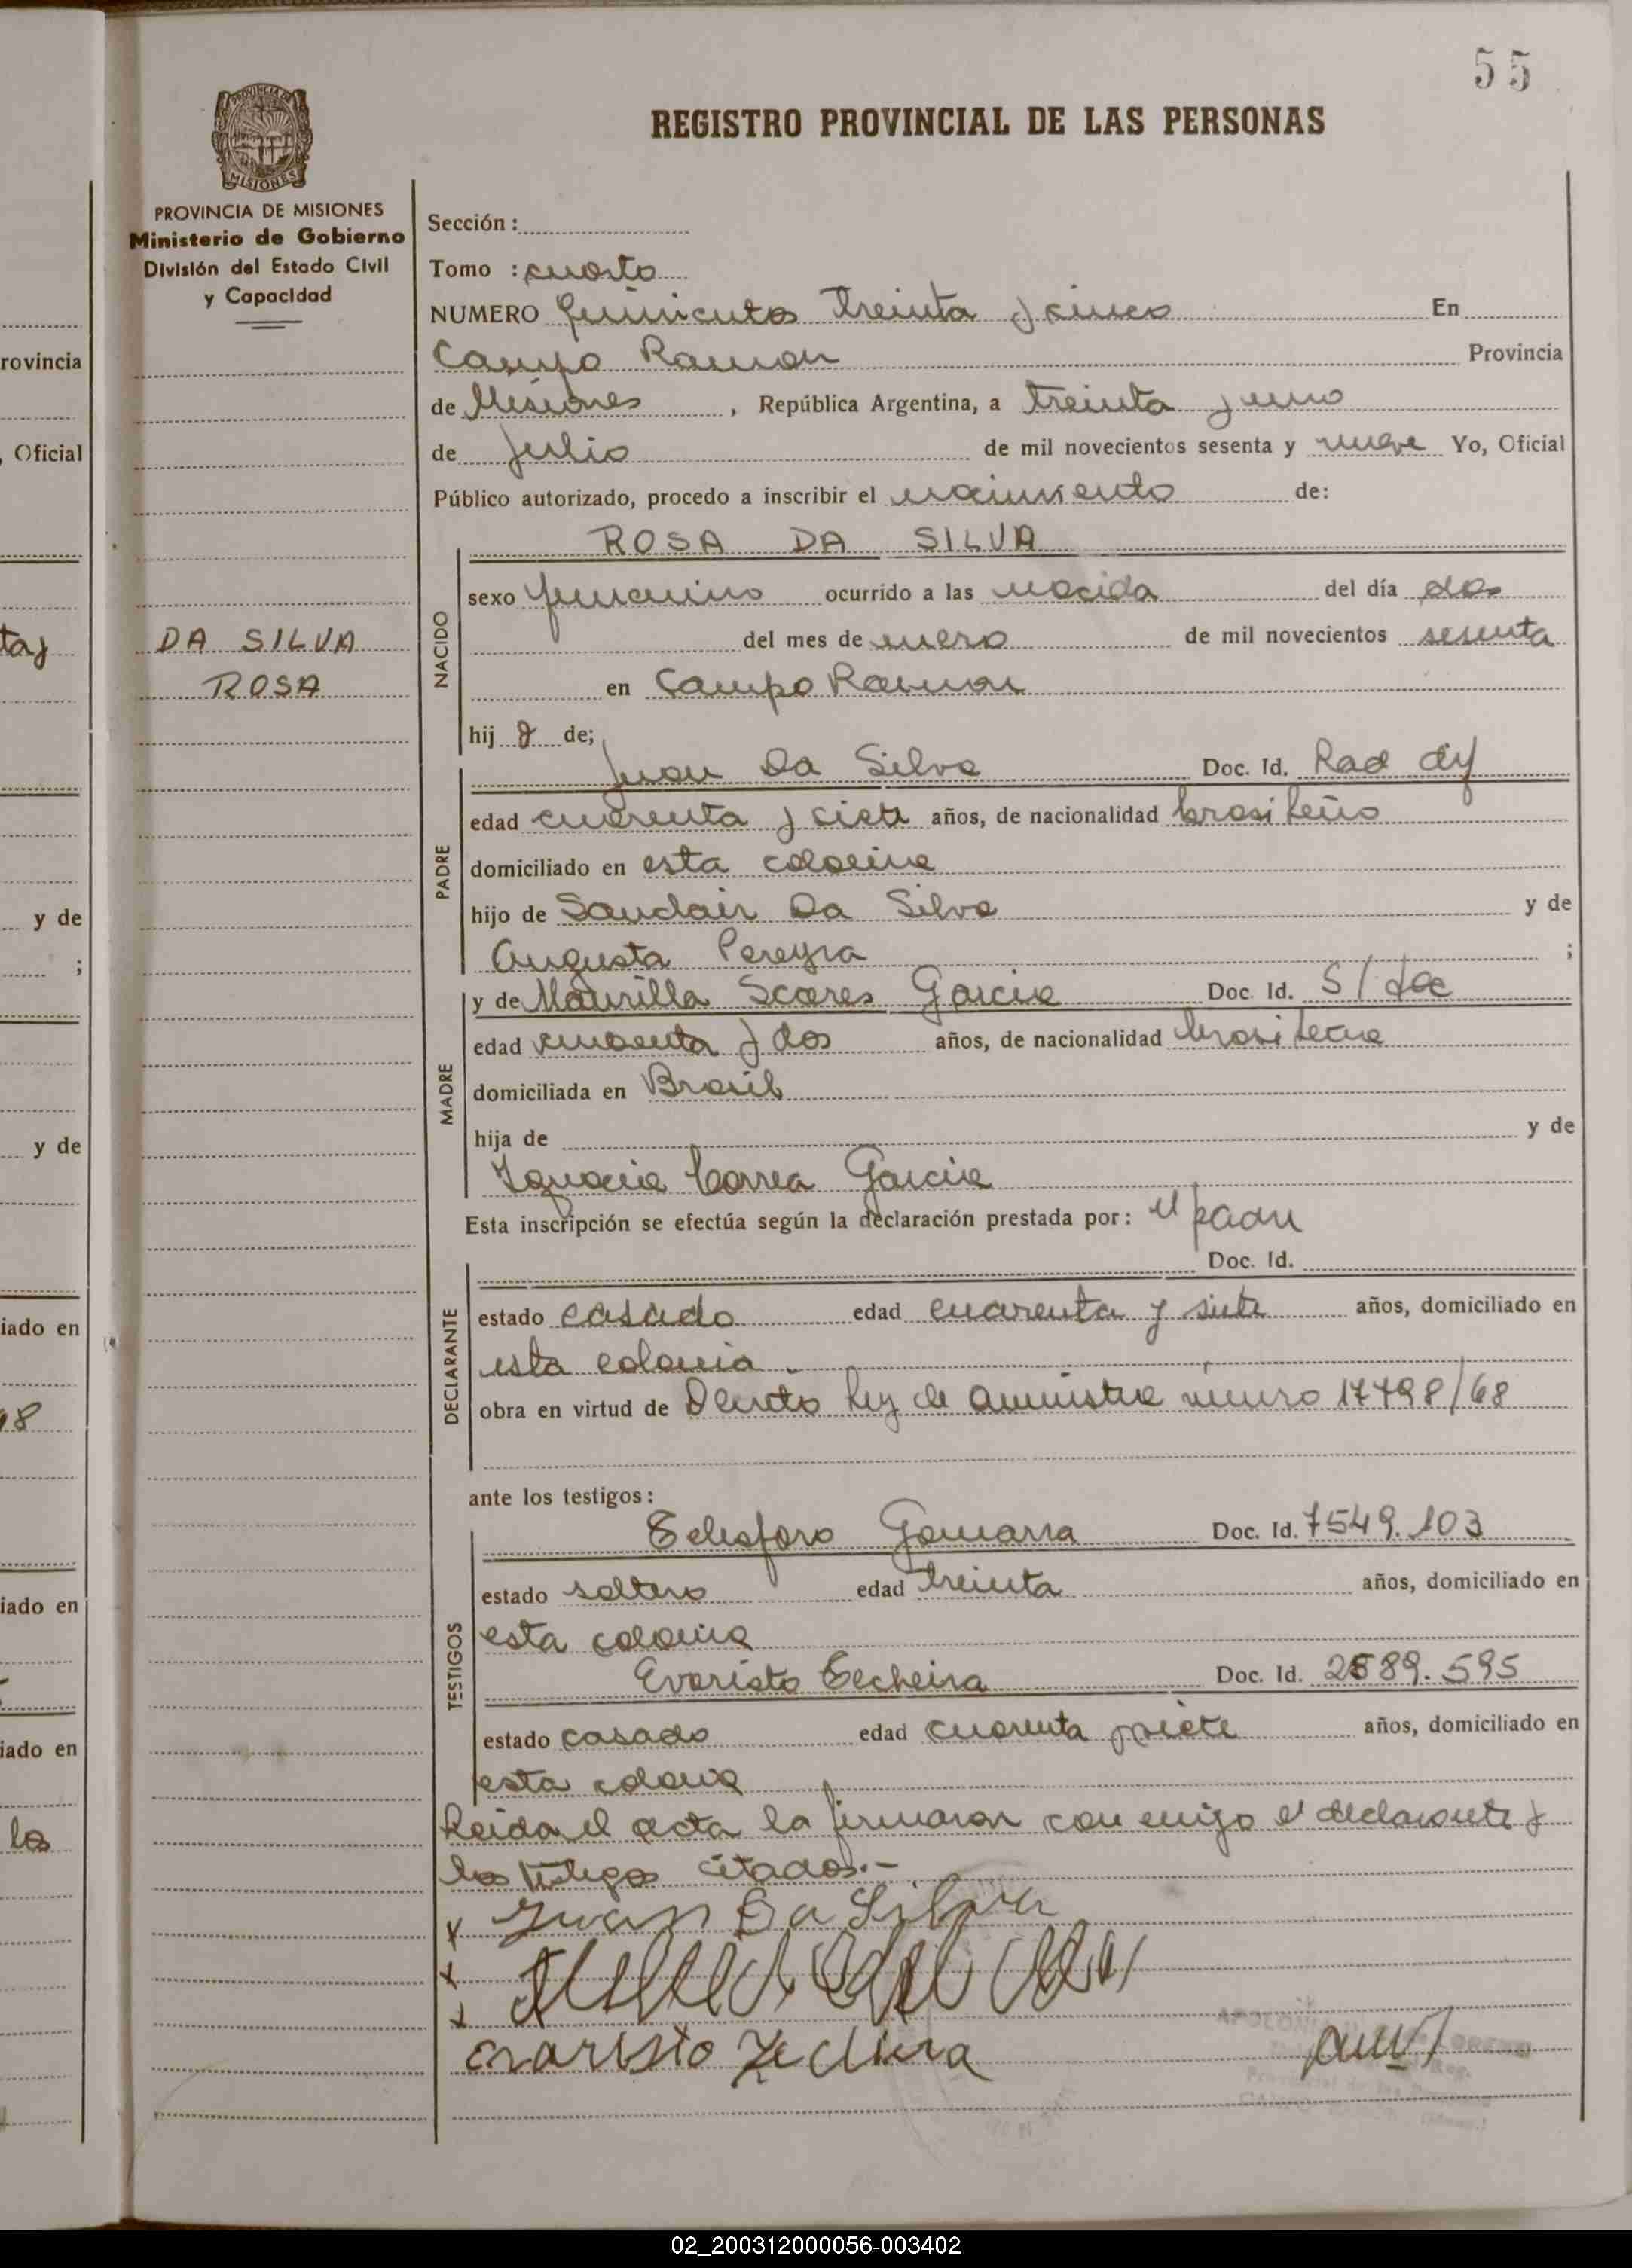 55
REGISTRO PROVINCIAL DE LAS PERSONAS
PROVINCIA DE MISIONES
Ministerio de Gobierno
División del Estado Civil
y Capacidad
DA SILVA
ROSA
Sección :
Tomo : cuarto
NUMERO Quinientos treinta y cinco En
Campo Ramon Provincia
de Misiones , República Argentina, a treinta y uno
de Julio de mil novecientos sesenta y nueve Yo, Oficial
Público autorizado, procedo a inscribir el nacimiento de:
ROSA DA SILVA
NACIDO
sexo femenino ocurrido a las nacida del día dos
del mes de enero de mil novecientos sesenta
en Campo Ramon
hij a de;
PADRE
Juan Da Silva Doc. Id. Rad
edad cuarenta y siete años, de nacionalidad brasileño
domiciliado en esta colonia
hijo de Sandair Da Silva y de
Augusta Pereyra ;
MADRE
y de Maurilla Scares Garcia Doc. Id. S/doc
edad y dos años, de nacionalidad brasilena
domiciliada en Brasil
hija de y de
Ignacia Correa Garcia
Esta inscripción se efectúa según la declaración prestada por: el padre
Doc. Id.
DECLARANTE
estado casado edad cuarenta y siete años, domiciliado en
esta colonia .
obra en virtud de Decreto Ley de amnistia número 17498/68
ante los testigos:
TESTIGOS
Telesforo Gamarra Doc. Id. 7549.103
estado soltero edad treinta años, domiciliado en
esta colonia
Evaristo Techeira Doc. Id. 2589.595
estado casado edad cuarenta y siete años, domiciliado en
esta colonia
Leida el acta la firmaron con migo el declarante y
los testigos citados.-
x Juan Da Silva
x
x
Evaristo Techeira
rovincia
, Oficial
y de
;
y de
iado en
iado en
iado en
los
02_200312000056-003402